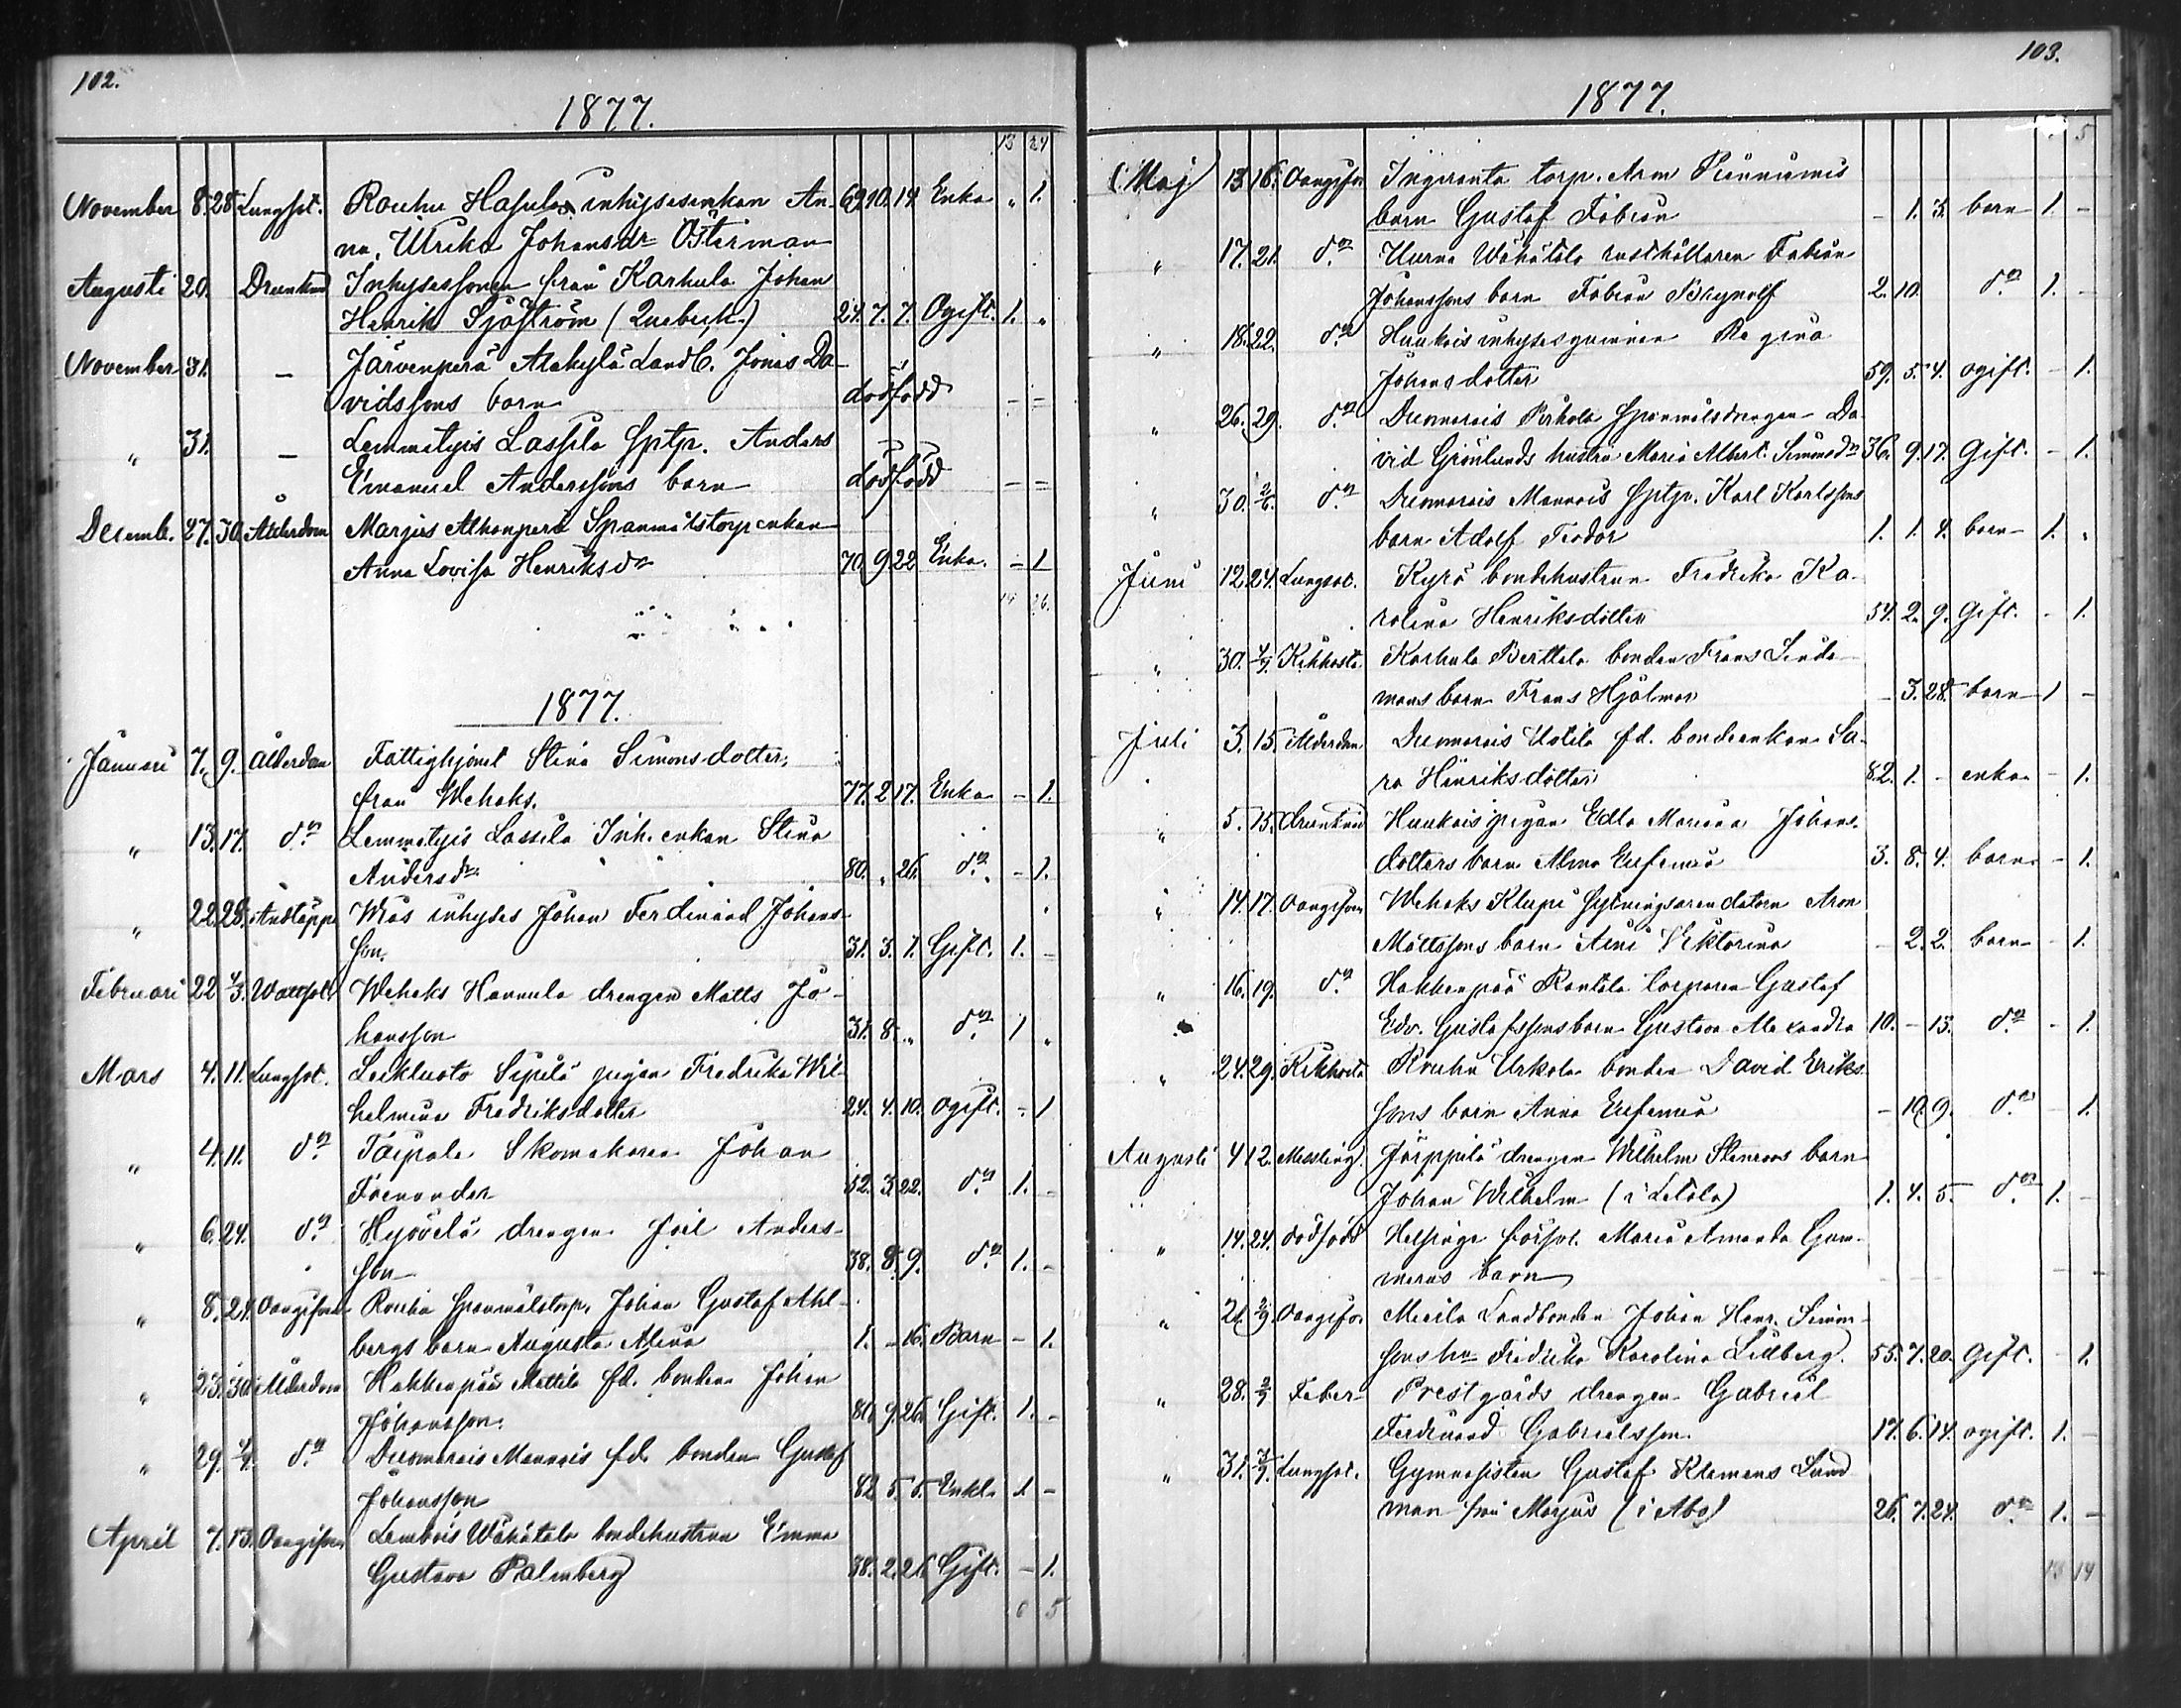 102.
1877.
13 24
November 8. 28. Lungsot. Rouhu Hasula inhysesenkan An- 69. 10. 14. Enka „ 1.
na Ulrika Johansdr Österman
Augusti 20. Drunknad Inhysessonen från Karhula Johan
Henrik Sjöström 24. 7. 7. Ogift. 1. „
November 31. – Järvenperä Alakylä Landb. Jonas Da-
vidssons barn dödfödd – –
„ 31. – Lemmetyis Lassila Sptp. Anders
Emanuel Anderssons barn dödfödd – –
Decemb. 27. 30. Ålderdom Marjus Alhonperä Spanmålstorpenkan
Anna Lovisa Henriksdr 70 9 22 Enka. – 1
14 26.
1877.
Januari 7. 9. Ålderdom Fattighjonet Stina Simonsdotter,
från Wehaks. 77. 2. 17. Enka – 1.
„ 13. 17. do Lemmetyis Lassila Inh. enkan Stina
Andersdr 80. „ 26. do – 1.
„ 22. 28. Andtäppa Wias inhyses Johan Ferdinand Johans-
son. 31. 3. 1. Gift. 1. –
Februari 22 4/3. Wattsot Wehaks Hannula drengen Matts Jo-
hansson 31. 8. „ do 1 „
Mars 4. 11. Lungsot. Leikluoto Sipilä pigan Fredrika Wil-
helmina Fredriksdotter 24. 4. 10. ogift. – 1
„ 4. 11. do Taipale Skomakaren Johan
Fornander 52. 3. 22. do 1. –
„ 6. 24. do Hyövelä drengen Joel Anders-
son 38. 8. 9. do 1. –
„ 8. 21. Oangifven Rouhu Spanmålstorp. Johan Gustaf Ahl-
bergs barn Augusta Alina 1. – 16. Barn – 1.
„ 23. 30. Ålderdom Hakkenpää Mattila fd. bonden Johan
Johansson. 80. 9. 26. Gift. 1. –
„ 29. do Duomarais Mannois fd. bonden Gustaf
Johansson 82 5. 5. Enkl. 1 –
April 7. 13. Oangifven Lembois Wähätalo bondehustrun Emma
Gustava Palmberg 38. 2. 21. Gift. – 1.
6 5
103.
1877.
5
Maj 13. 16. Oangifven torp. Arm
barn Gustaf Fabian – 1. 3. barn 1. –
„ 17. 21. do Wähätalo rusthållaren Fabian
Johanssons barn Fabian Brynolf 2. 10. do 1. –
„ 18. 22. do Haukois inhysesqvinnan Regina
Johansdotter 59. 5. 4. ogift. – 1.
„ 26. 29. do Duomarais Pirhola Spanmålsdrengen Da-
vid Grönlunds hustru Maria Albert. Simonsdr 36. 9. 17. Gift. – 1.
„ 30. 2/6. do Duomarais Mannois Sptp. Karl Karlssons
barn Adolf Teodor 1. 1. 4. barn 1. „
Juni 12. 24. Lungsot. Kyrö bondehustrun Fredrika Ka-
rolina Henriksdotter 54. 2. 9. Gift. – 1.
„ 30. 4/7. Kikhosta Karhula Berttala bonden Frans Linde-
mans barn Frans Hjalmar – 3. 28. barn 1 –
Juli 3. 15. Ålderdom Duomarais Uotila fd. bondeenkan Sa-
ra Henriksdotter 82. 1. – enka – 1.
„ 5. 15. drunknad Haukois pigan Edla Maria Johans-
dotters barn Alma Eufemia 3. 8. 4. barn – 1.
„ 14. 17. Oangifven Wehaks Klupi Sytningsarendatorn Aron
Mattssons barn Aini Viktorina – 2. 2. barn – 1.
„ 16. 19. do Hakkenpää Rantala torparen Gustaf
Edv. Gustafssons barn Gustava Alexandra 10. – 13. do – 1.
„ 24. 29. Kikhosta Rouhu Urkola bonden David Eriks-
sons barn Anna Eufemia – 10. 9. do – 1.
Augusti 4 12. Messling. Järppilä drengen Wilhelm Stenroos barn
Johan Wilhelm (i Letala) 1. 4. 5. do 1. –
„ 14. 24. dödfödd Helsinge församl. Maria Amanda Gum-
merus barn – –
„ 21. 2/9. Oangifv. Landbonden Johan Henr. Simon-
sons hu Fredrika Karolina Lillberg. 55. 7. 20. Gift. – 1.
„ 28. 2/9 Feber Prestgårds drengen Gabriel
Ferdinand Gabrielsson. 17. 6. 14. ogift. 1. –
„ 31. 7/9. Lungsot. Gymnasisten Gustaf Klemens Lind
man från Marjus (i Abo) 26. 7. 24. do 1. –
13 14